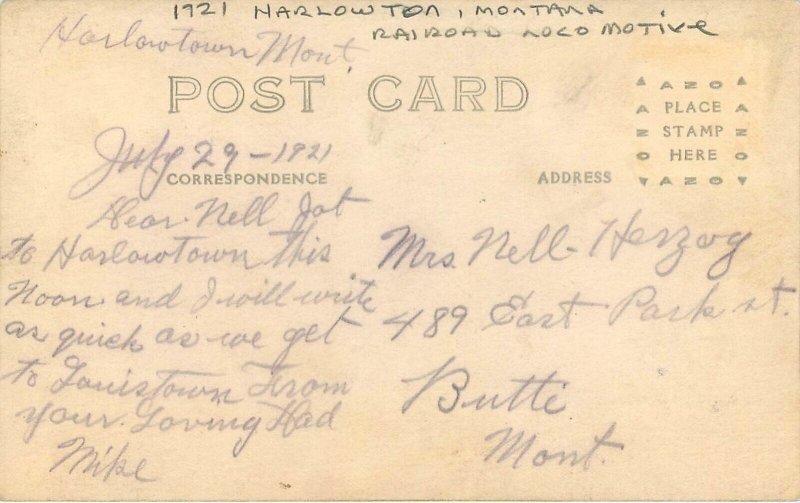 1921 HARLOWTON, MONTANA
RAIROAD LOCOMOTIVE
Harlowtown Mont,
POST CARD
AZO
PLACE
STAMP
HERE
AZO
July 29-1921
CORRESPONDENCE
ADDRESS
Dear Nell Got
to Harlowtown this
Noon and I will write
as quick as we get
to Louistown From
your Loving Had
Mike
Mrs. Nell Herzog
489 East Park st.
Butte
Mont.